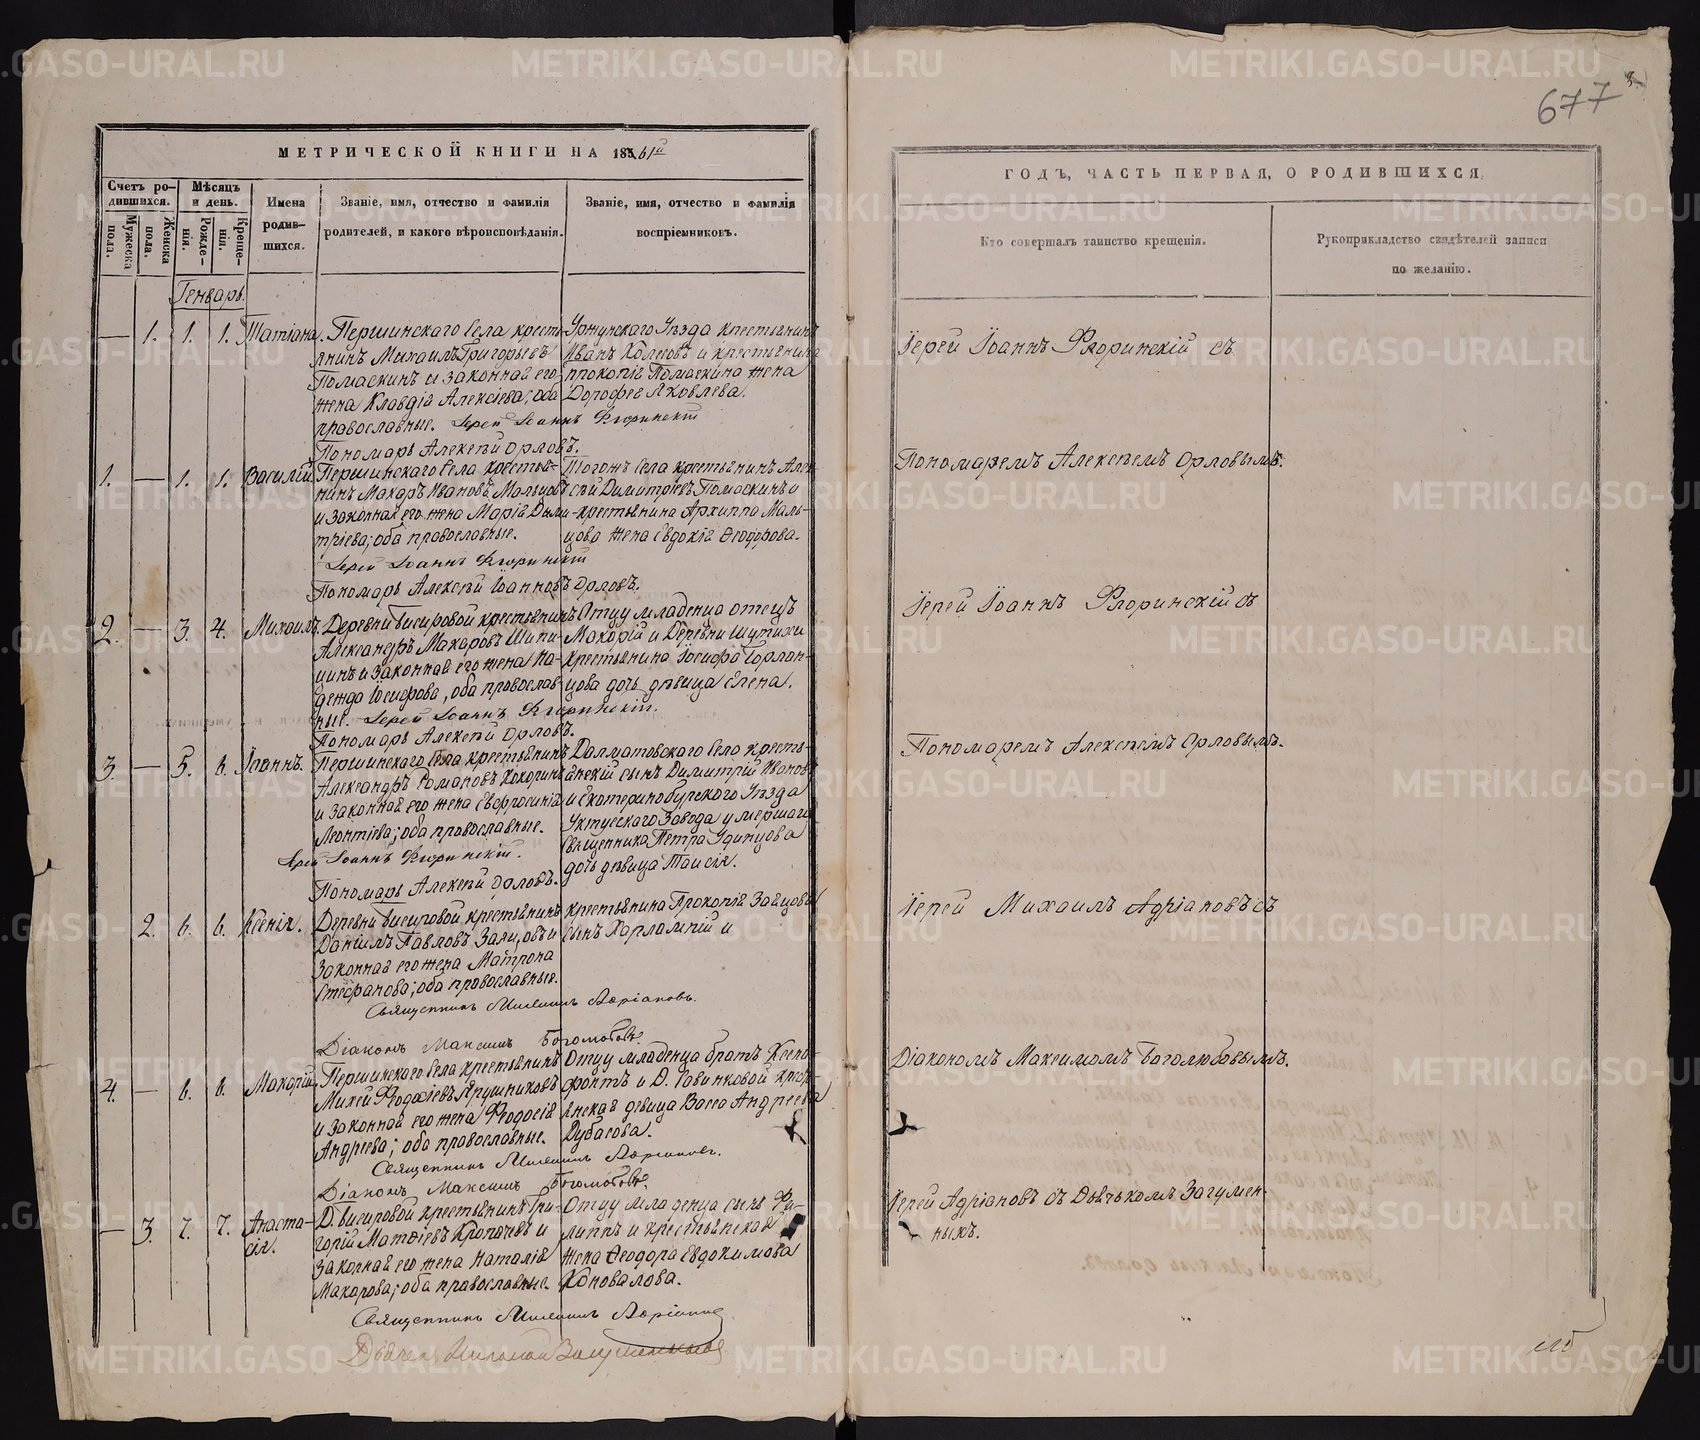 677
МЕТРИЧЕСКОЙ КНИГИ НА 1861й
ГОДЪ, ЧАСТЬ ПЕРВАЯ, О РОДИВШИХСЯ.
Счетъ родившихся.
Мужеска пола.
Женска пола.
Мѣсяцъ и день.
Рожденія.
Крещенія.
Имена родившихся.
Званіе, имя, отчество и фамилія
родителей, и какого вѣроисповѣданія.
Званіе, имя, отчество и фамилія
воспріемниковъ.
Кто совершалъ таинство крещенія.
Рукоприкладство свидѣтелей записи
по желанію.
Генварь.
— 1. 1. 1. Татіана.
Першинскаго села кресть-
янинъ Михаилъ Григорьевъ
Помаскинъ и законная его
жена Клавдія Алексіева; оба
православные. Іерей Іоаннъ Флоринскій
Пономарь Алексѣй Орловъ.
Уржумскаго Уѣзда крестьянинъ
Иванъ и крестьянина
Прокопія Помаскина жена
Дорофея Яковлева.
Іерей Іоаннъ Флоринскій съ
Пономаремъ Алексѣемъ Орловымъ.
1. — 1. 1. Василій
Першинскаго села крестья-
нинъ Макаръ Ивановъ Мальцовъ
и законная его жена Марія Дими-
тріева; оба православные.
Іерей Іоаннъ Флоринскій
Пономарь Алексѣй Іоанновъ Орловъ.
Тогожъ села крестьянинъ Алек-
сѣй Димитріевъ Помаскинъ и
крестьянина Архиппа Маль-
цова жена Евдокія Ѳеодорова.
2. — 3. 4. Михаилъ.
Деревни Бисировой крестьянинъ
Александръ Макаровъ Шипи-
цинъ и законная его жена На-
дежда Іосифова, оба православ-
ные. Іерей Іоаннъ Флоринскій.
Пономарь Алексѣй Орловъ.
Отцу младенца отецъ
Макарій и Деревни Шутихи
крестьянина Іосифа Горлан-
цова дочь дѣвица Елена.
Іерей Іоаннъ Флоринскій съ
Пономаремъ Алексѣемъ Орловымъ.
3. — 5. 6. Іоаннъ.
Першинскаго села крестьянинъ
Александръ Романовъ Кокоринъ
и законная его жена Евфросинія
Леонтіева; оба православные.
Іерей Іоаннъ Флоринскій.
Пономарь Алексѣй Орловъ.
Далматовскаго села кресть-
янскій сынъ Димитрій Ивановъ
и Екатеринобургскаго Уѣзда
Уктусскаго Завода умершаго
священника Петра Удинцова
дочь дѣвица Таисія.
— 2. 6. 6. Ксенія.
Деревни Бисировой крестьянинъ
Даніилъ Павловъ и
законная его жена Матрона
Стефанова; оба православные.
Священникъ Михаилъ Адріановъ.
Діаконъ Максимъ Боголюбовъ.
крестьянина Прокопія Зайцова
сынъ Харлампій и
Іерей Михаилъ Адріановъ съ
Діакономъ Максимомъ Боголюбовымъ.
4. — 6. 6. Макарій
Першинскаго села крестьянинъ
Михей Ярушниковъ
и законная его жена Ѳеодосія
Андреева; оба православные.
Священникъ Михаилъ Адріановъ.
Діаконъ Максимъ Боголюбовъ.
Отцу младенца братъ Ксено-
фонтъ и Д. крестья-
янская дѣвица Васса Андреева
Дубасова.
— 3. 7. 7. Анаста-
сія.
Д. Бисировой крестьянинъ Гри-
горій Матѳіевъ и
законная его жена Наталія
Макарова; оба православные.
Священникъ Михаилъ Адріановъ
Дьячекъ Загуменныхъ
Отцу младенца сынъ Фи-
липпъ и крестьянская
жена Ѳеодора Евдокимова
Коновалова.
Іерей Адріановъ съ Дьячкомъ Загумен-
ныхъ.
METRIKI.GASO-URAL.RU